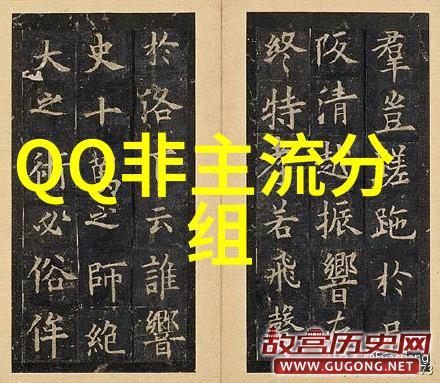 QQ非主流分
组
羣豈蹉跎於
阪清越振響
終特若飛
於洛云誰響
史十萬之師絶
大之術必俗侔
故宫历史网
WWW.GUGONG.NET